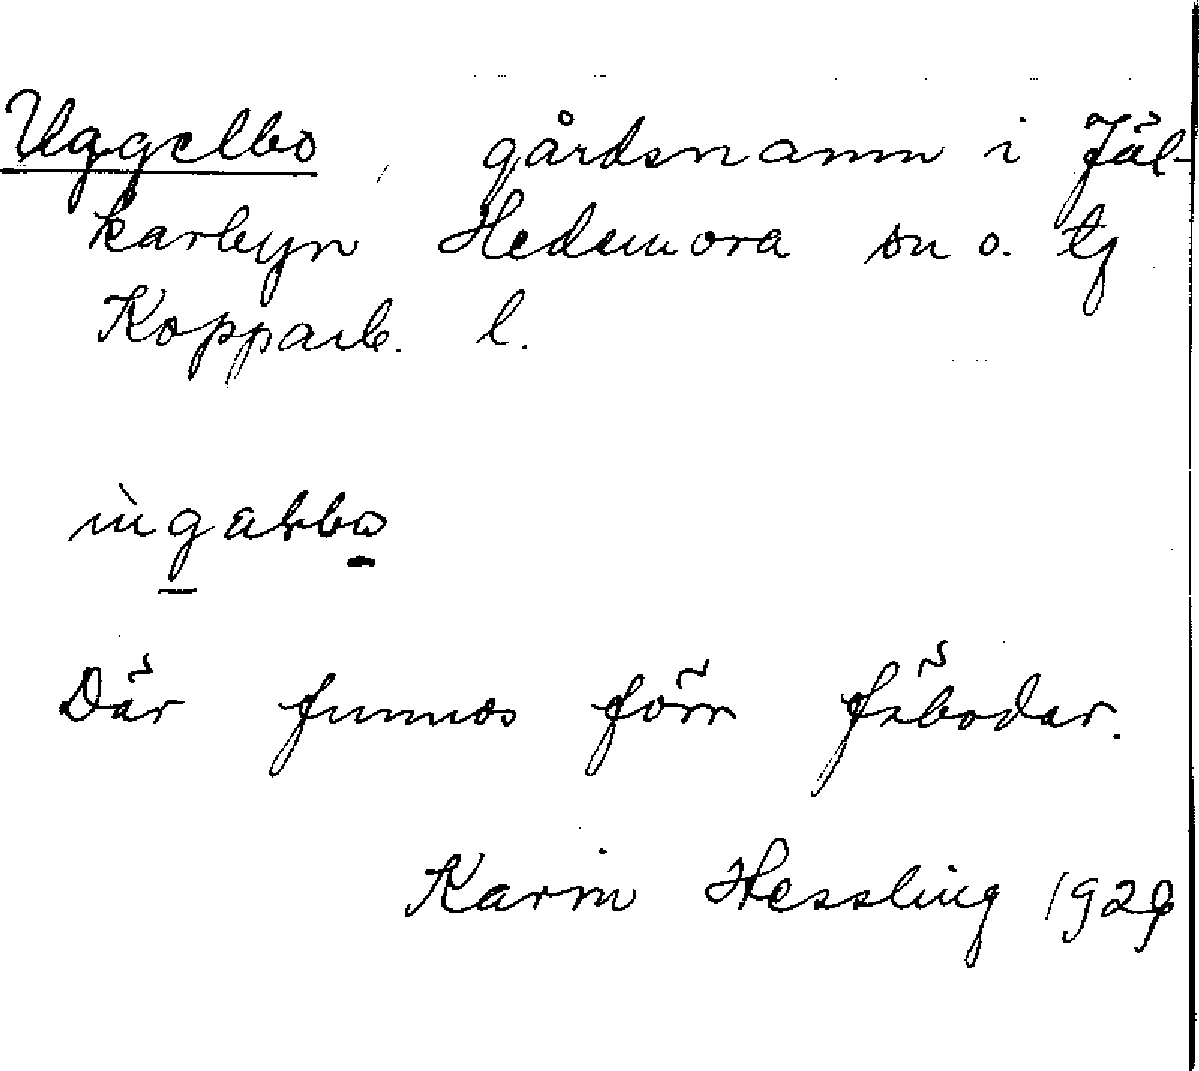 Uggelbo, gårdsnamn i Jäl-
karbyn Hedemora sn o. tg
Kopparb. l.
Där funnos förr fäbodar.
Karin Hessling 1929